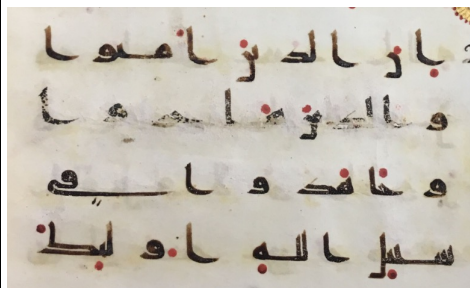 ان الذين امنوا
والذين هاجروا
وجاهدوا في
سبيل الله اولئك